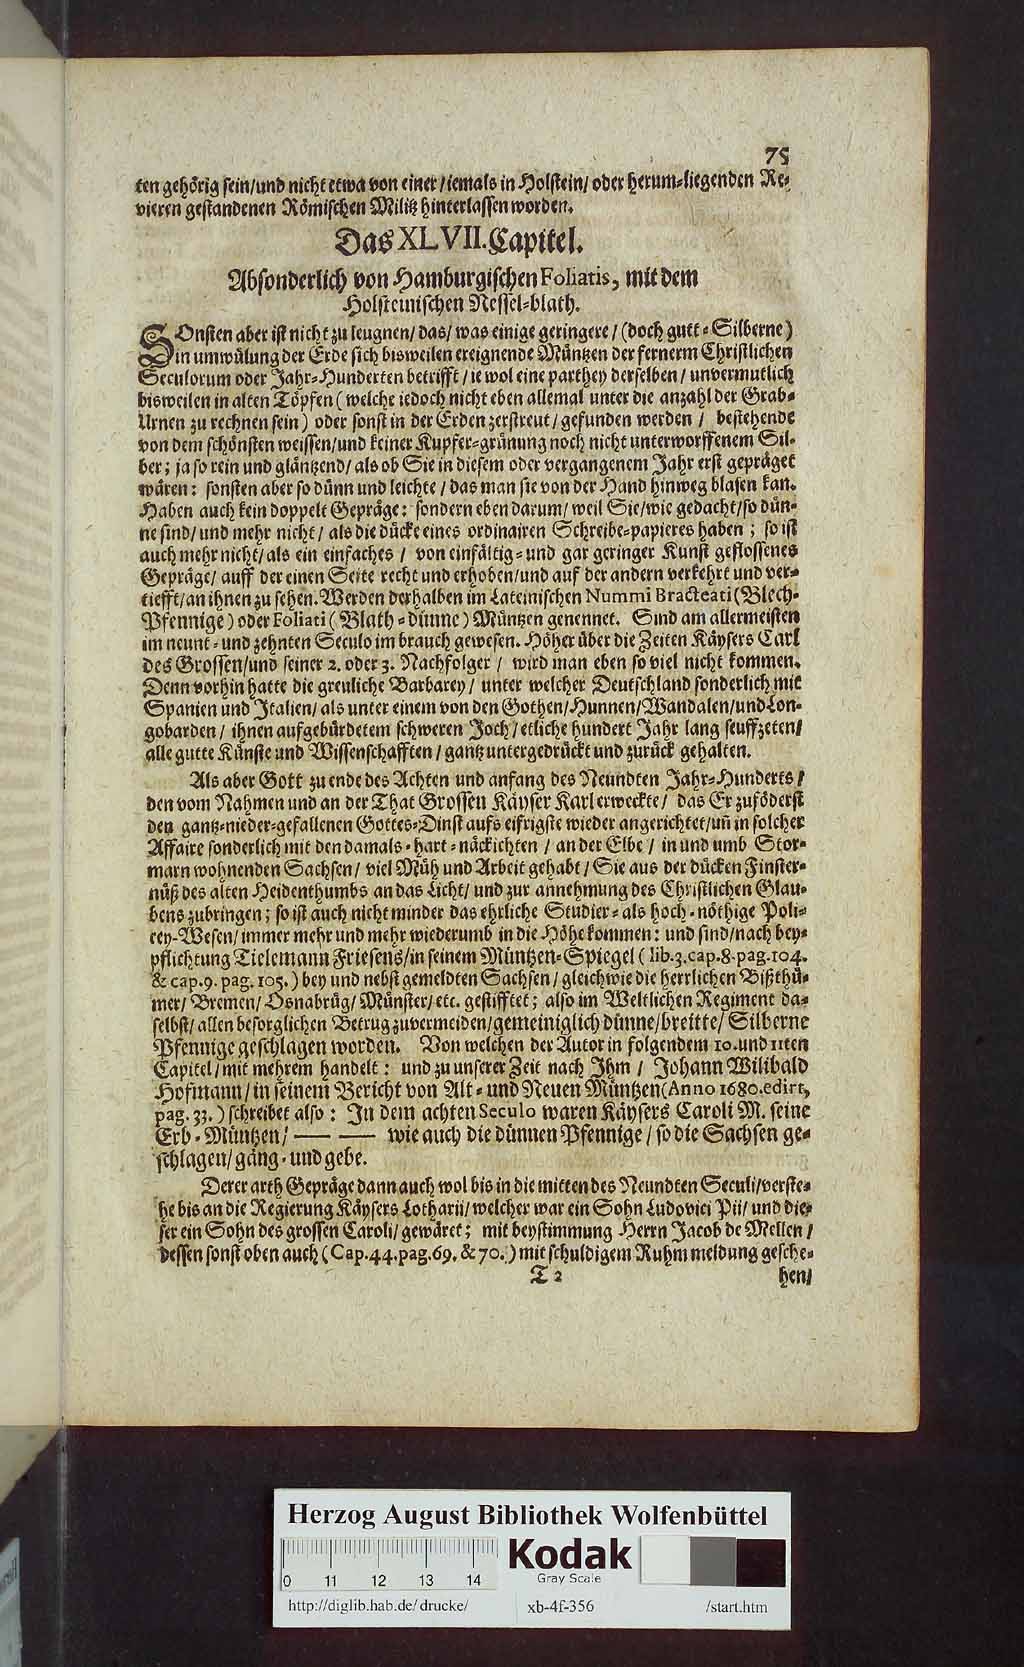 75
ten gehörig sein/und nicht etwa von einer/iemals in Holstein/oder herum-liegenden Re-
vieren gestandenen Römischen Militz hinterlassen worden.
Das XLVII. Capitel.
Absonderlich von Hamburgischen Foliatis, mit dem
Holsteinischen Nessel-blath.
SOnsten aber ist nicht zu leugnen/das/was einige geringere/(doch gutt-Silberne)
in umwülung der Erde sich bisweilen ereignende Müntzen der fernerm Christlichen
Seculorum oder Jahr-Hunderten betrifft/ie wol eine parthey derselben/unvermutlich
bisweilen in alten Töpfen (welche iedoch nicht eben allemal unter die anzahl der Grab-
Urnen zu rechnen sein) oder sonst in der Erden zerstreut/gefunden werden/ bestehende
von dem schönsten weissen/und keiner Kupfer-grünung noch nicht unterworffenem Sil-
ber; ja so rein und gläntzend/als ob Sie in diesem oder vergangenem Jahr erst gepräget
wären: sonsten aber so dünn und leichte/das man sie von der Hand hinweg blasen kan.
Haben auch kein doppelt Gepräge: sondern eben darum/weil Sie/wie gedacht/so dün-
ne sind/und mehr nicht/als die dücke eines ordinairen Schreibe-papieres haben; so ist
auch mehr nicht/als ein einfaches/ von einfältig-und gar geringer Kunst geflossenes
Gepräge/auff der einen Seite recht und erhoben/und auf der andern verkehrt und ver-
tiefft/an ihnen zu sehen. Werden derhalben im Lateinischen Nummi Bracteati (Blech-
Pfennige) oder Foliati (Blath-dünne) Müntzen genennet. Sind am allermeisten
im neunt-und zehnten Seculo im brauch gewesen. Höher über die Zeiten Käysers Carl
des Grossen/und seiner 2. oder 3. Nachfolger/ wird man eben so viel nicht kommen.
Denn vorhin hatte die greuliche Barbarey/unter welcher Deutschland sonderlich mit
Spanien und Italien/als unter einem von den Gothen/Hunnen/Wandalen/und Lon-
gobarden/ihnen aufgebürdetem schweren Joch/etliche hundert Jahr lang seuffzeten/
alle gutte Künste und Wissenschafften/gantz untergedrückt und zurück gehalten.
Als aber Gott zu ende des Achten und anfang des Neundten Jahr-Hunderts/
den vom Nahmen und an der That Grossen Käyser Karl erweckte/ das Er zuföderst
den gantz-nieder-gefallenen Gottes-Dinst aufs eifrigste wieder angerichtet/uñ in solcher
Affaire sonderlich mit den damals-hart-näckichten/an der Elbe/in und umb Stor-
marn wohnenden Sachsen/viel Müh und Arbeit gehabt/Sie aus der dücken Finster-
nüß des alten Heidenthumbs an das Licht/und zur annehmung des Christlichen Glau-
bens zubringen; so ist auch nicht minder das ehrliche Studier-als hoch-nöthige Poli-
cey-Wesen/immer mehr und mehr wiederumb in die Höhe kommen: und sind/nach bey-
pflichtung Tielemann Friesens/in seinem Müntzen-Spiegel (lib. 3. cap. 8. pag. 104.
& cap. 9. pag. 105.) bey und nebst gemeldten Sachsen/gleichwie die herrlichen Bißthü-
mer/Bremen/Osnabrüg/Münster/etc. gestifftet; also im Weltlichen Regiment da-
selbst/allen besorglichen Betrug zuvermeiden/gemeiniglich dünne/breitte/Silberne
Pfennige geschlagen worden. Von welchen der Autor in folgendem 10. und 11ten
Capitel/mit mehrem handelt: und zu unserer Zeit nach Ihm/Johann Wilibald
Hofmann/in seinem Bericht von Alt-und Neuen Müntzen (Anno 1680. edirt,
pag. 33.) schreibet also: In dem achten Seculo waren Käysers Caroli M. seine
Erb-Müntzen/ —— —— wie auch die dünnen Pfennige/so die Sachsen ge-
schlagen/gäng-und gebe.
Derer arth Gepräge dann auch wol bis in die mitten des Neundten Seculi/verste-
he bis an die Regierung Käysers Lotharii/welcher war ein Sohn Ludovici Pii/und die-
ser ein Sohn des grossen Caroli/gewäret; mit beystimmung Herrn Jacob de Mellen/
dessen sonst oben auch (Cap. 44. pag. 69. & 70.) mit schuldigem Ruhm meldung gesche-
T 2 hen/
Herzog August Bibliothek Wolfenbüttel
0 11 12 13 14 Kodak
Gray Scale
http://diglib.hab.de/drucke/ xb-4f-356 /start.htm